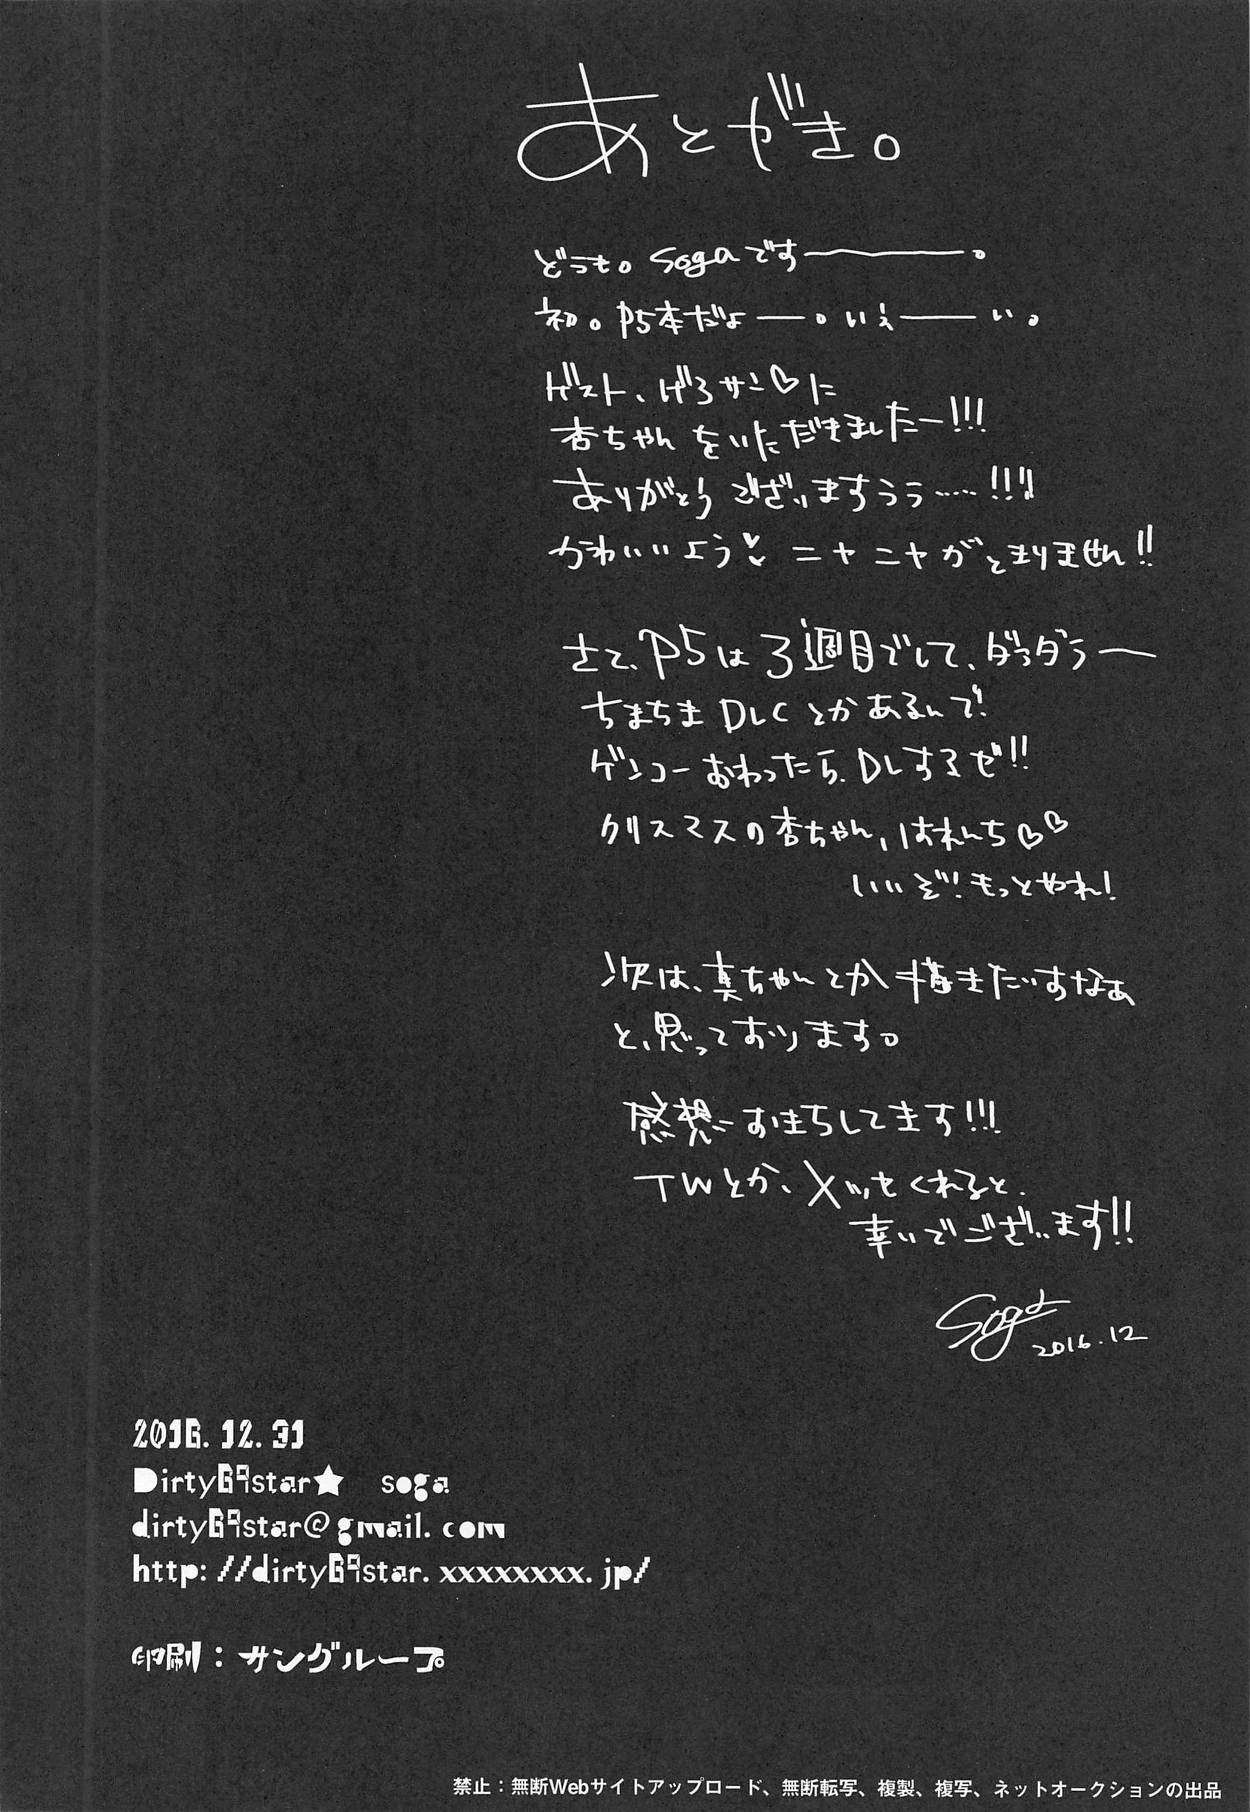 あとがき。
どうも。sogaですー。
初。P5本だよー。いぇーい。
ゲスト、げろサン♡に
杏ちゃんをいただきましたー!!!
ありがとうございますぅぅ……!!!
かわいいよう♡ ニヤニヤがとまりません!!
さて、P5は3週目でして、ダラダラー
ちまちまDLCとかあるんで!
ゲンコーおわったら、DLするぜ!!
クリスマスの杏ちゃん、はれんち♡♡
いいぞ!もっとやれ!
次は、真ちゃんとか描きたいすなぁ
と、思っております。
感想おまちしてます!!!
TWとか、メッセくれると、
幸いでございます!!
Soga
2016.12
2016.12.31
Dirty69star★ soga
dirty69star@gmail.com
http://dirty69star.xxxxxxxx.jp/
印刷：サングループ
禁止：無断Webサイトアップロード、無断転写、複製、複写、ネットオークションの出品